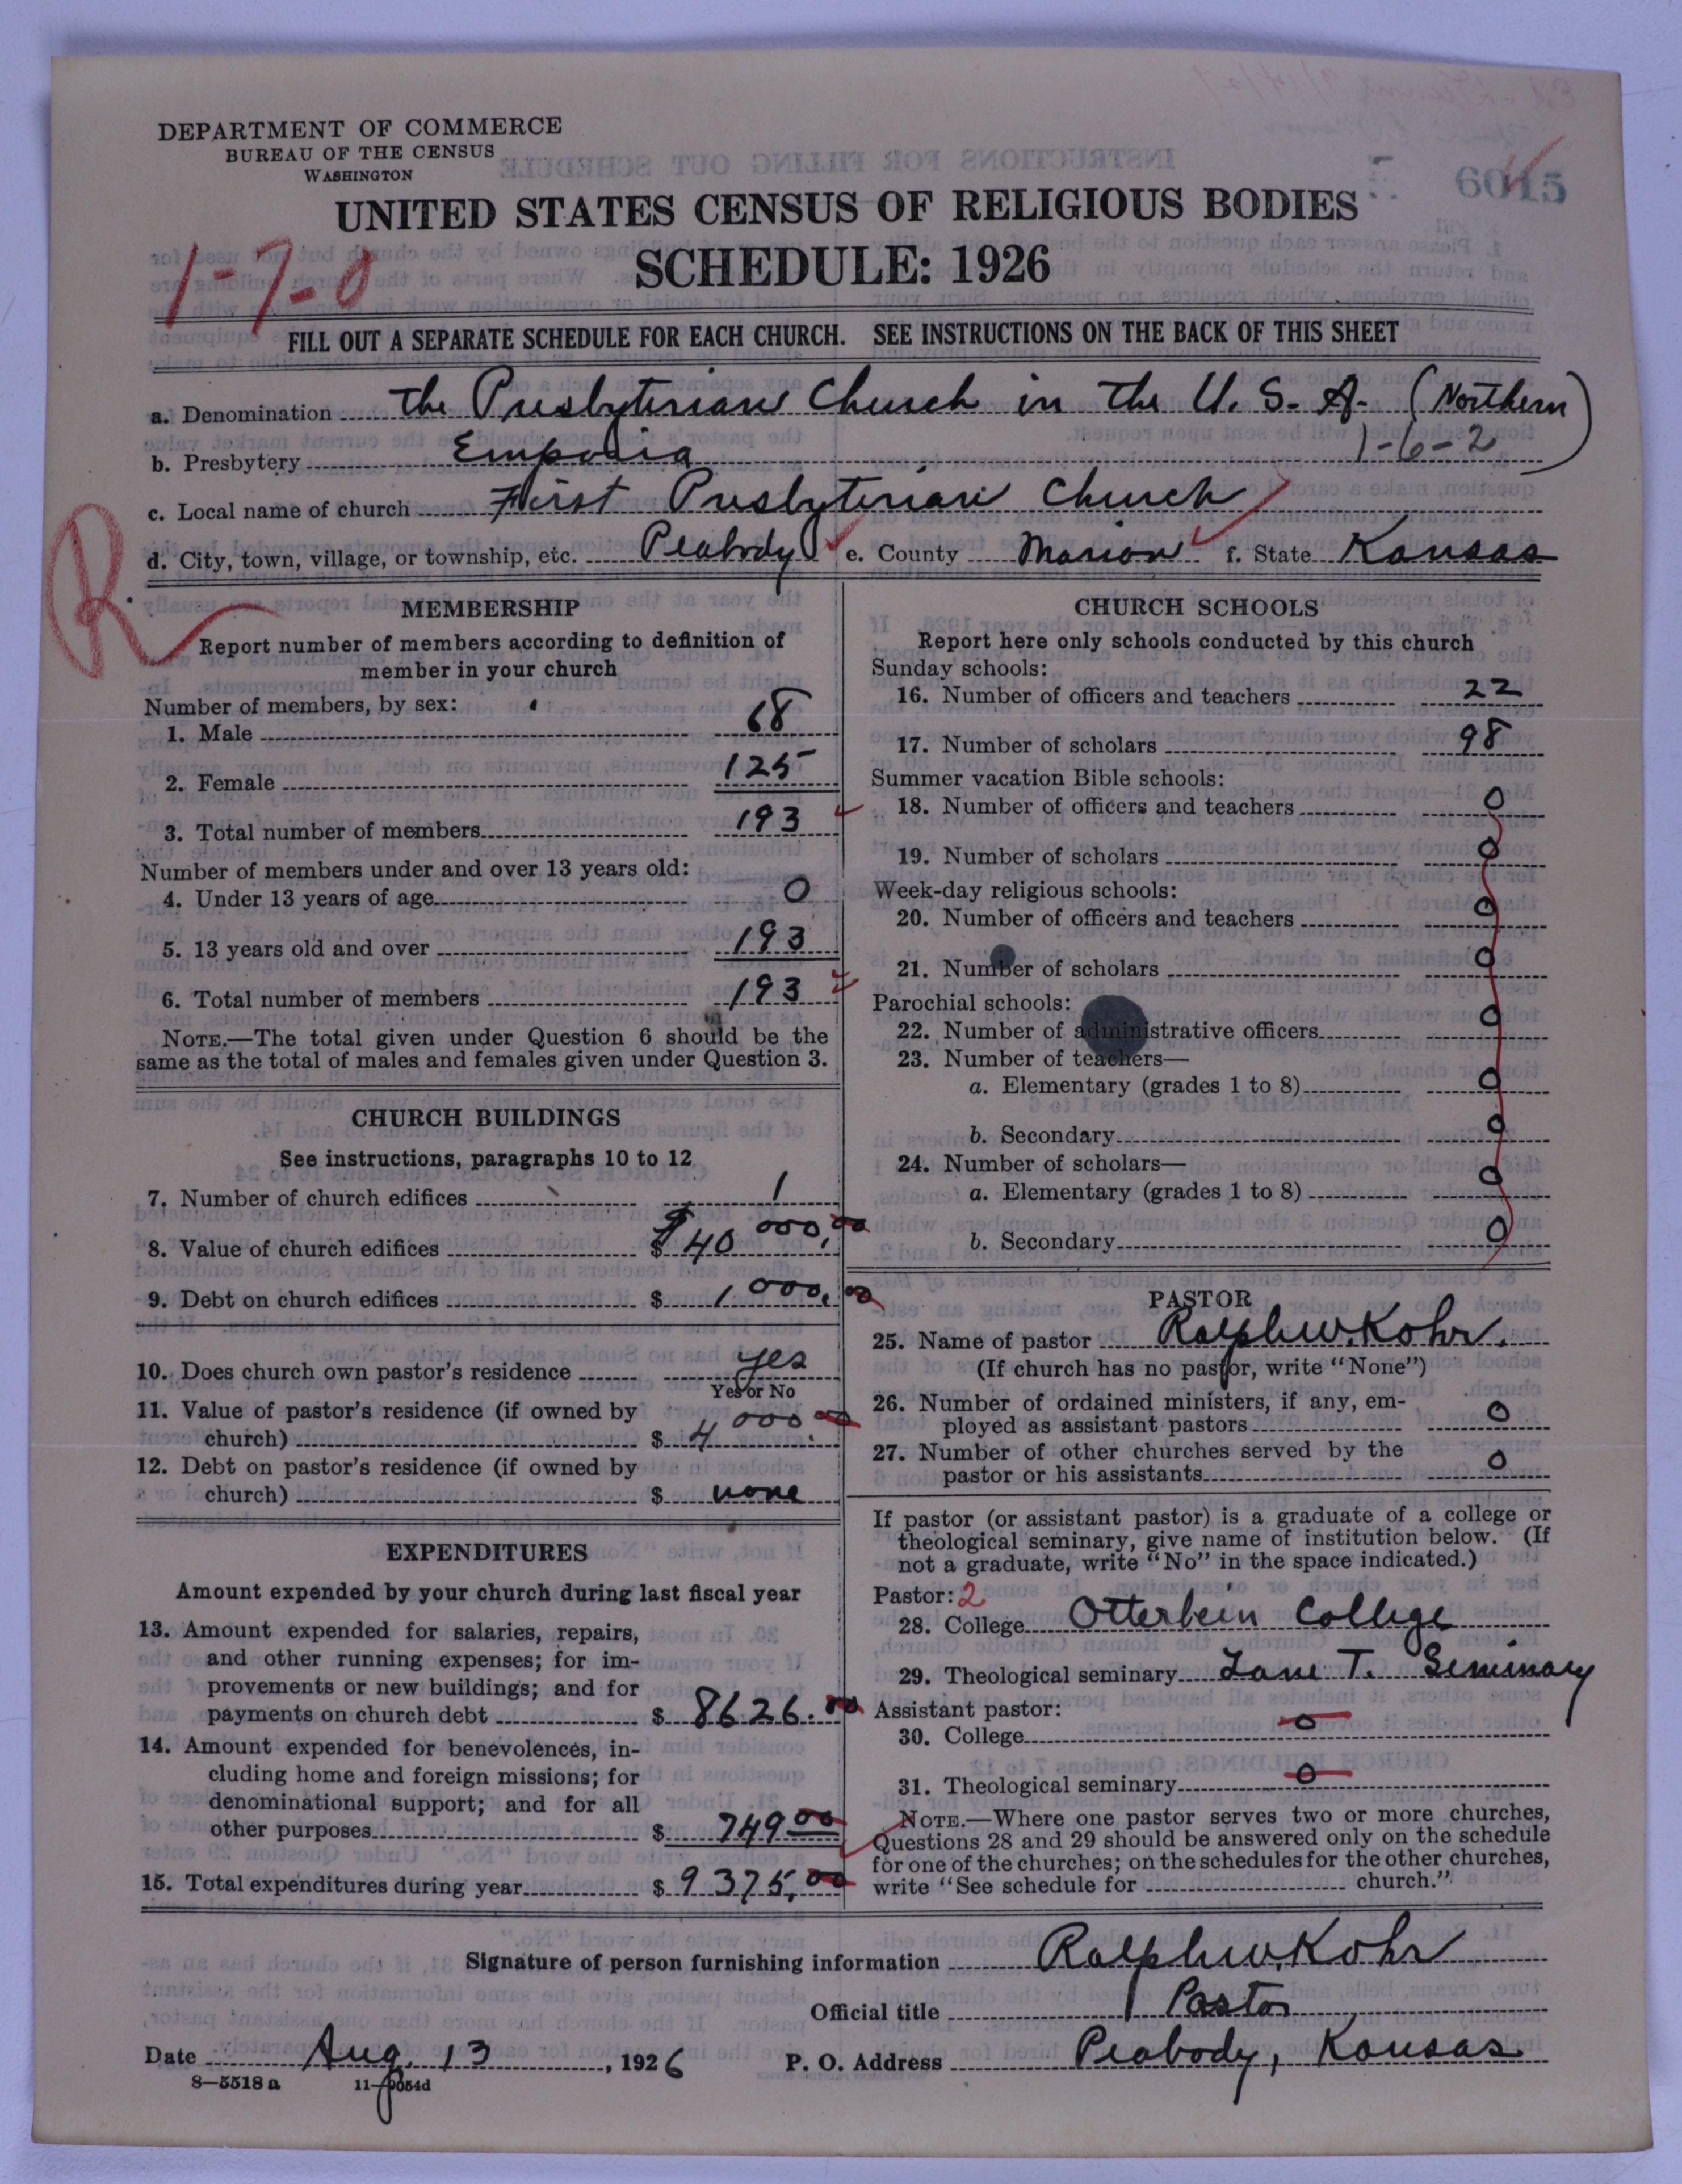 DEPARTMENT OF COMMERCE
BUREAU OF THE CENSUS
WASHINGTON
6015
UNITED STATES CENSUS OF RELIGIOUS BODIES
SCHEDULE: 1926
1-7-0
FILL OUT A SEPARATE SCHEDULE FOR EACH CHURCH. SEE INSTRUCTIONS ON THE BACK OF THIS SHEET
a. Denomination The Presbyterian Church in the U. S. A. (Northern)
b. Presbytery Emporia 1-6-2
c. Local name of church First Presbyterian Church
d. City, town, village, or township, etc. Peabody e. County Marion f. State Kansas
R
MEMBERSHIP
Report number of members according to definition of
member in your church
Number of members, by sex:
1. Male 68
2. Female 125
3. Total number of members 193
Number of members under and over 13 years old:
4. Under 13 years of age 0
5. 13 years old and over 193
6. Total number of members 193
NOTE.—The total given under Question 6 should be the
same as the total of males and females given under Question 3.
CHURCH BUILDINGS
See instructions, paragraphs 10 to 12
7. Number of church edifices 1
8. Value of church edifices $ $40 000,00
9. Debt on church edifices $ 1 000,00
10. Does church own pastor's residence yes
Yes or No
11. Value of pastor's residence (if owned by
church) $ 4 000.00
12. Debt on pastor's residence (if owned by
church) $ none
EXPENDITURES
Amount expended by your church during last fiscal year
13. Amount expended for salaries, repairs,
and other running expenses; for im-
provements or new buildings; and for
payments on church debt $ 8626.00
14. Amount expended for benevolences, in-
cluding home and foreign missions; for
denominational support; and for all
other purposes $ 749 00
15. Total expenditures during year $ 9375,00
CHURCH SCHOOLS
Report here only schools conducted by this church
Sunday schools:
16. Number of officers and teachers 22
17. Number of scholars 98
Summer vacation Bible schools:
18. Number of officers and teachers 0
19. Number of scholars 0
Week-day religious schools:
20. Number of officers and teachers 0
21. Number of scholars 0
Parochial schools:
22. Number of administrative officers 0
23. Number of teachers—
a. Elementary (grades 1 to 8) 0
b. Secondary 0
24. Number of scholars—
a. Elementary (grades 1 to 8) 0
b. Secondary 0
PASTOR
25. Name of pastor Ralph W. Kohr.
(If church has no pastor, write "None")
26. Number of ordained ministers, if any, em-
ployed as assistant pastors 0
27. Number of other churches served by the
pastor or his assistants 0
If pastor (or assistant pastor) is a graduate of a college or
theological seminary, give name of institution below. (If
not a graduate, write "No" in the space indicated.)
Pastor: 2
28. College Otterbein College
29. Theological seminary Lane T. Seminary
Assistant pastor:
30. College 0
31. Theological seminary 0
NOTE.—Where one pastor serves two or more churches,
Questions 28 and 29 should be answered only on the schedule
for one of the churches; on the schedules for the other churches,
write "See schedule for church."
Signature of person furnishing information Ralph W. Kohr
Official title Pastor
Date Aug. 13, 1926 P. O. Address Peabody, Kansas
8—5518 a 11—9054d